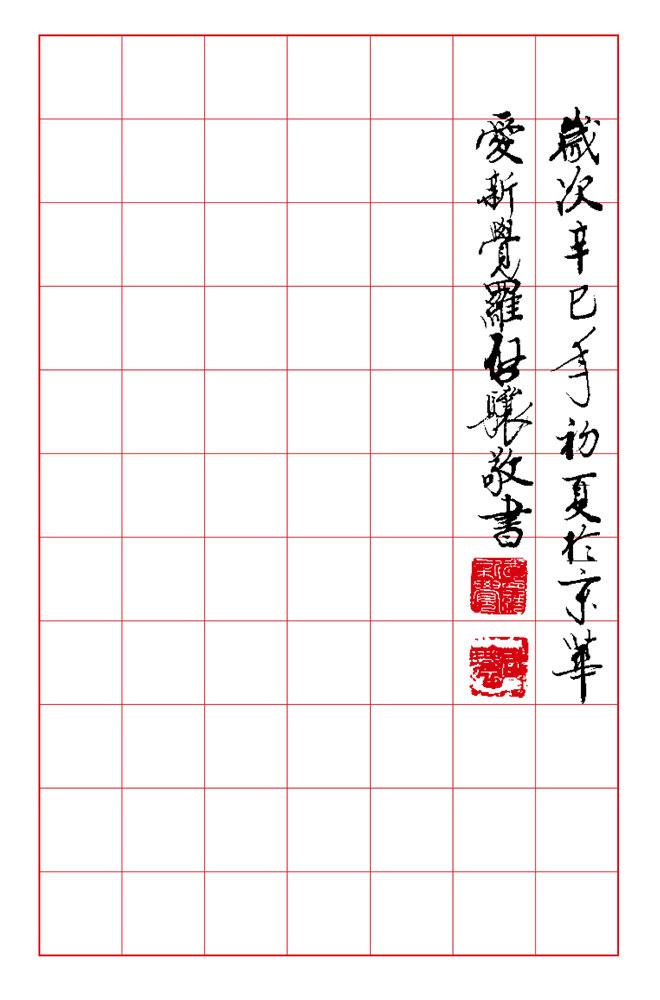 歲次辛巳年初夏於京華
愛新覺羅啟驤敬書